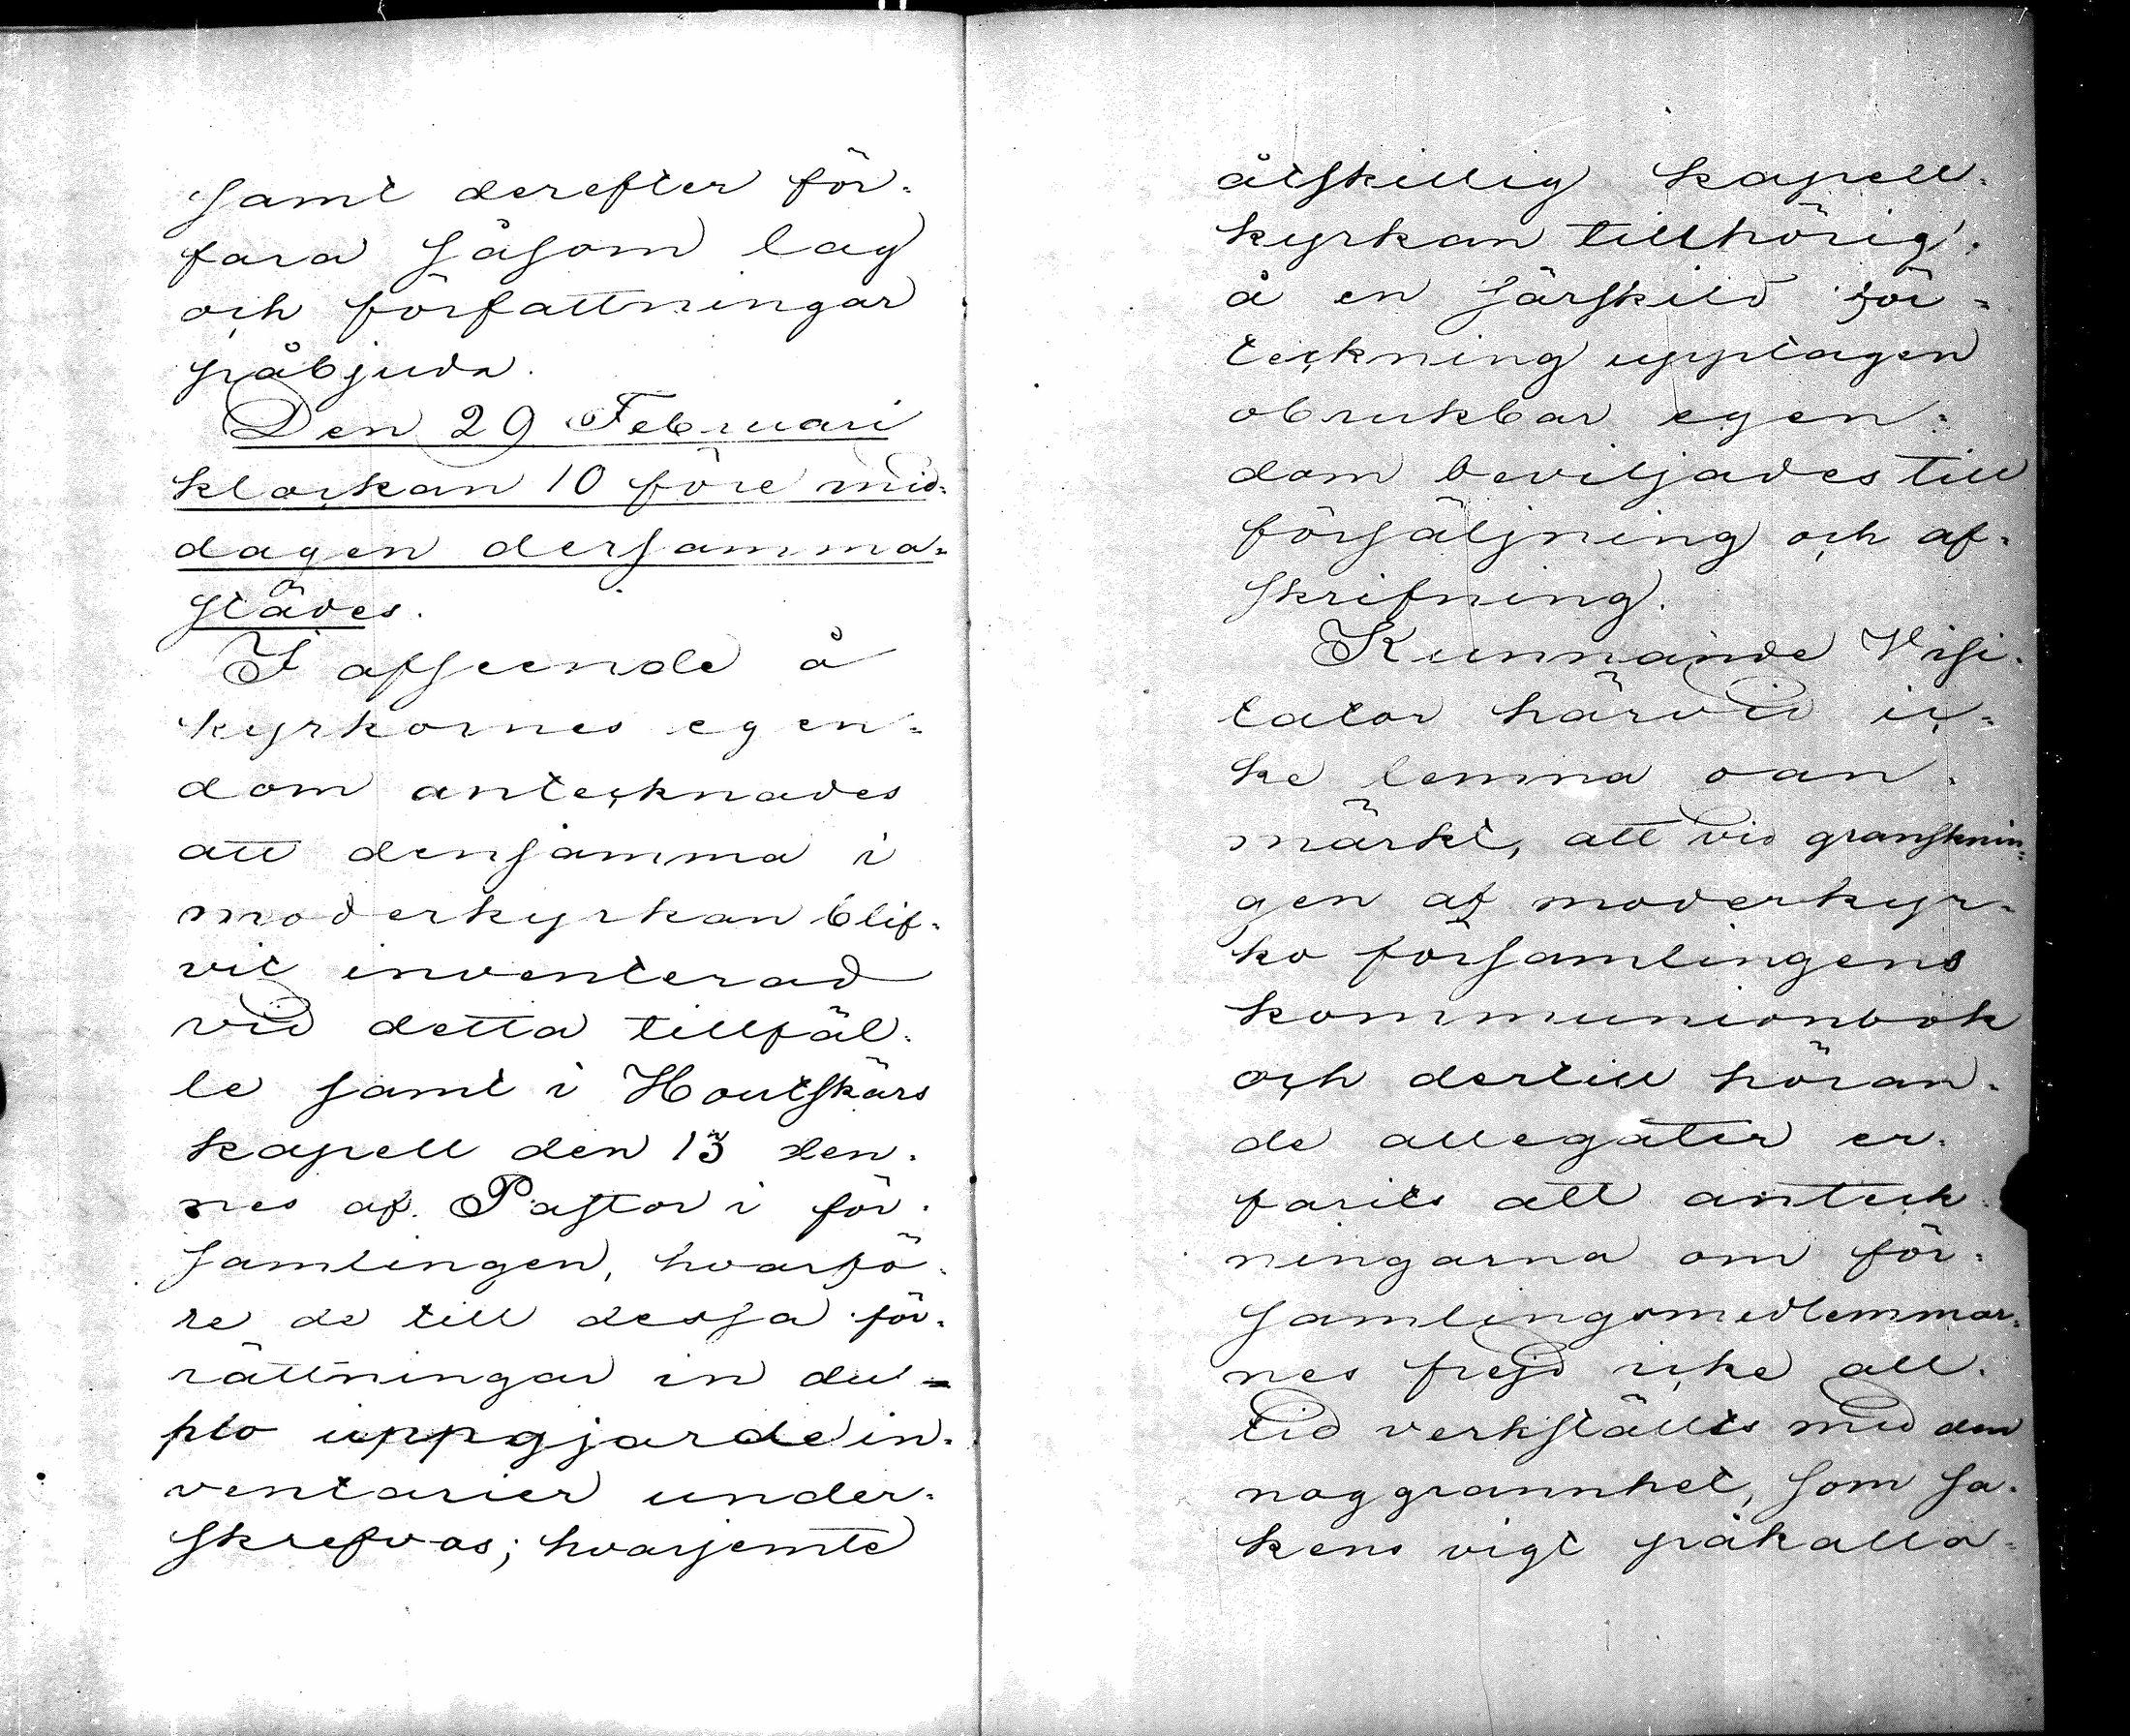 samt derefter för-
fara såsom lag
och författningar
påbjuda.
Den 29 Februari
klockan 10 före mid-
dagen dersamma-
städes.
I afseende å
kyrkornes egen-
dom antecknades
att densamma i
moderkyrkan blif-
vit inventerad
vid detta tillfäl-
le samt i Houtskärs
kapell den 13 den-
nes af Pastor i för-
samlingen, hvarfö-
re de till dessa för-
rättningar in du-
plo uppgjorde in-
ventarier under-
skrefvos; hvarjemte
åtskillig kapell-
kyrkan tillhörig,
å en särskild för-
teckning upptagen
obrukbar egen-
dom beviljades till
försäljning och af-
skrifning.
Kunnande Visi-
tator härvid ic-
ke lemna oan-
märkt, att vid gransknin-
gen af moderkyr-
ko församlingens
kommunionbok
och dertill höran-
de allegater er-
farits att anteck-
ningarna om för-
samlingsmedlemmar-
nes frejd icke all-
tid verkställts med den
noggrannhet, som sa-
kens vigt påkalla-